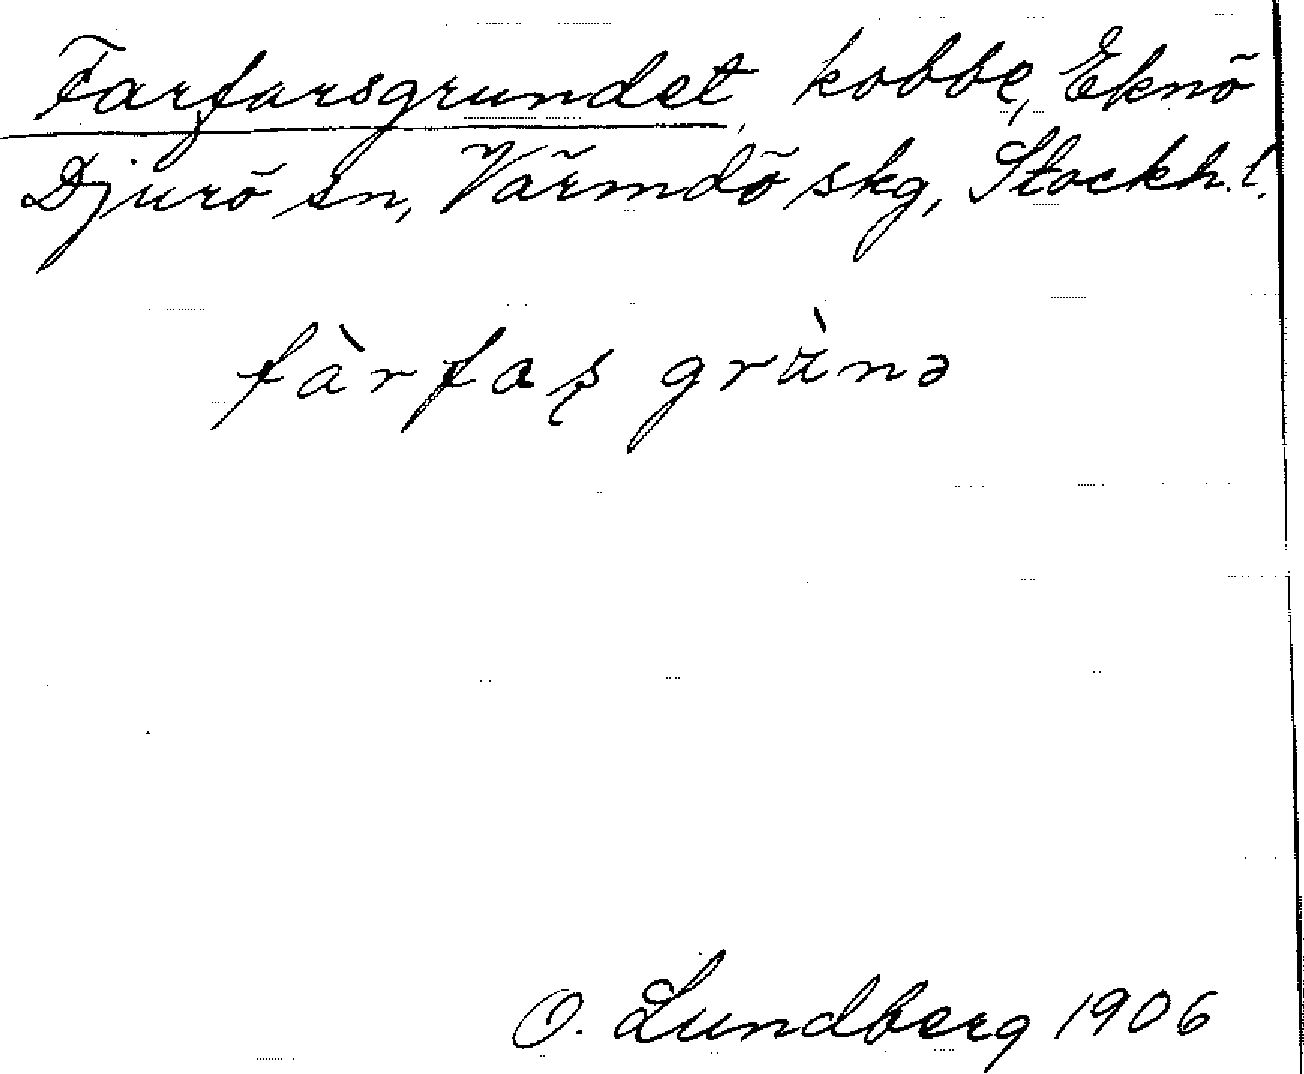 Farfarsgrundet, kobbe, Eknö
Djurö sn, Värmdö skg, Stockh. l.
fàrfaș grùnə
O. Lundberg 1906